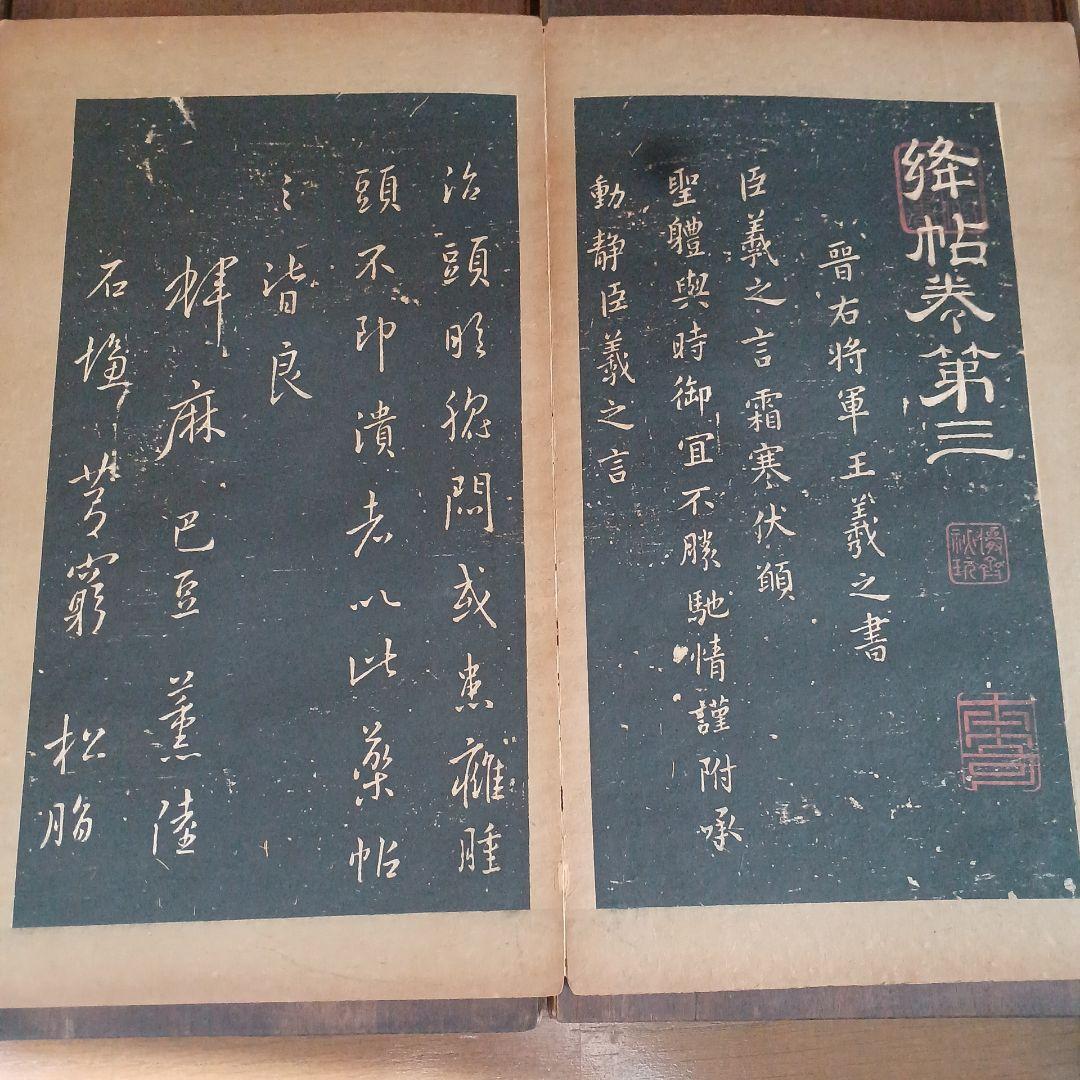 絳帖卷第三
晉右將軍王羲之書
臣羲之言霜寒伏願
聖體與時御宜不勝馳情謹附承
動靜臣羲之言
治頭眩腦悶或患癰腫
頭不即潰者以此藥帖
之皆良
麻 巴豆 薰陸
石塩 芎窮 松脂